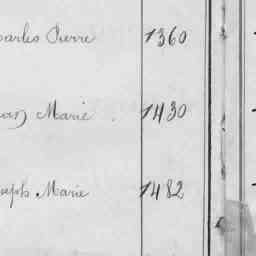 Charles Pierre 1360
Jean Marie . 1430
Joseph Marie 1482